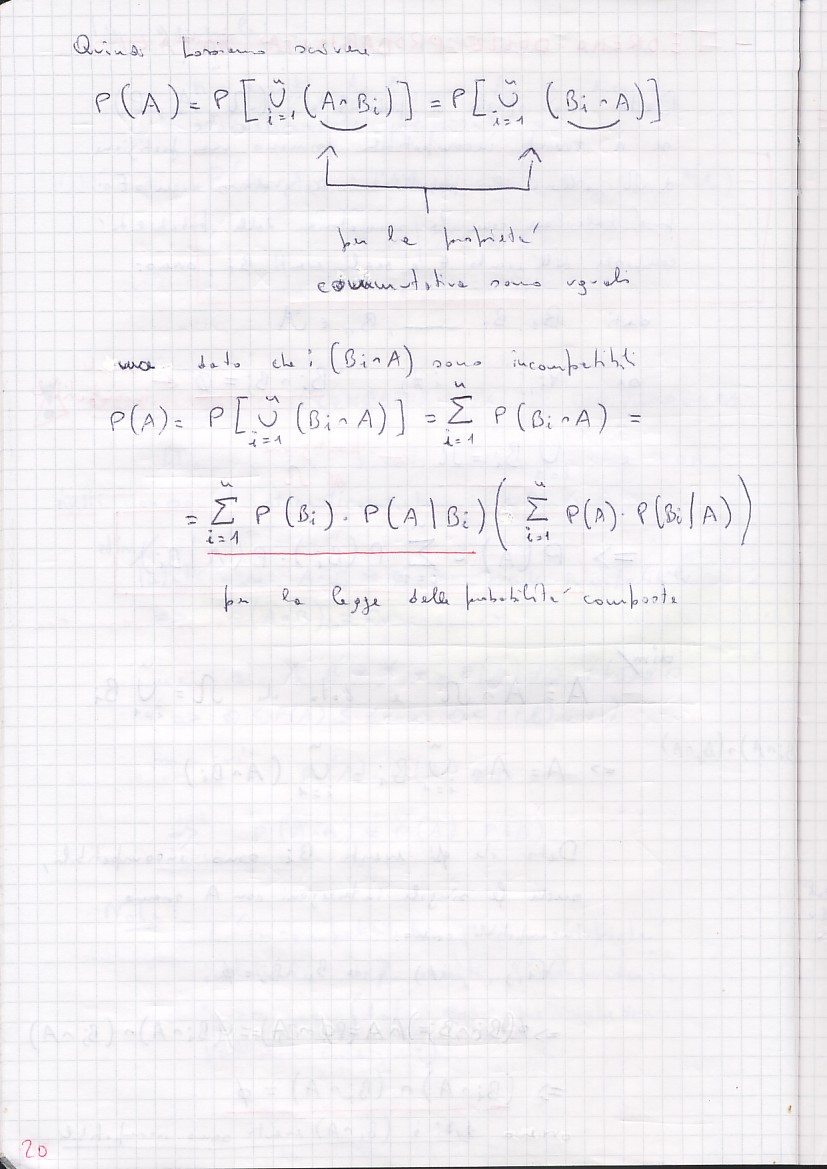 Quindi possiamo scrivere
P(A) = P[⋃ᵢ₌₁ⁿ (A∩Bi)] = P[⋃ᵢ₌₁ⁿ (Bi∩A)]
per la proprietá
commutativa sono uguali
ma dato che i (Bi∩A) sono incompatibili
P(A) = P[⋃ᵢ₌₁ⁿ (Bi∩A)] = ∑ᵢ₌₁ⁿ P(Bi∩A) =
= ∑ᵢ₌₁ⁿ P(Bi)·P(A|Bi) ( ∑ᵢ₌₁ⁿ P(A)·P(Bi|A) )
per la legge delle probabilitá composte
20